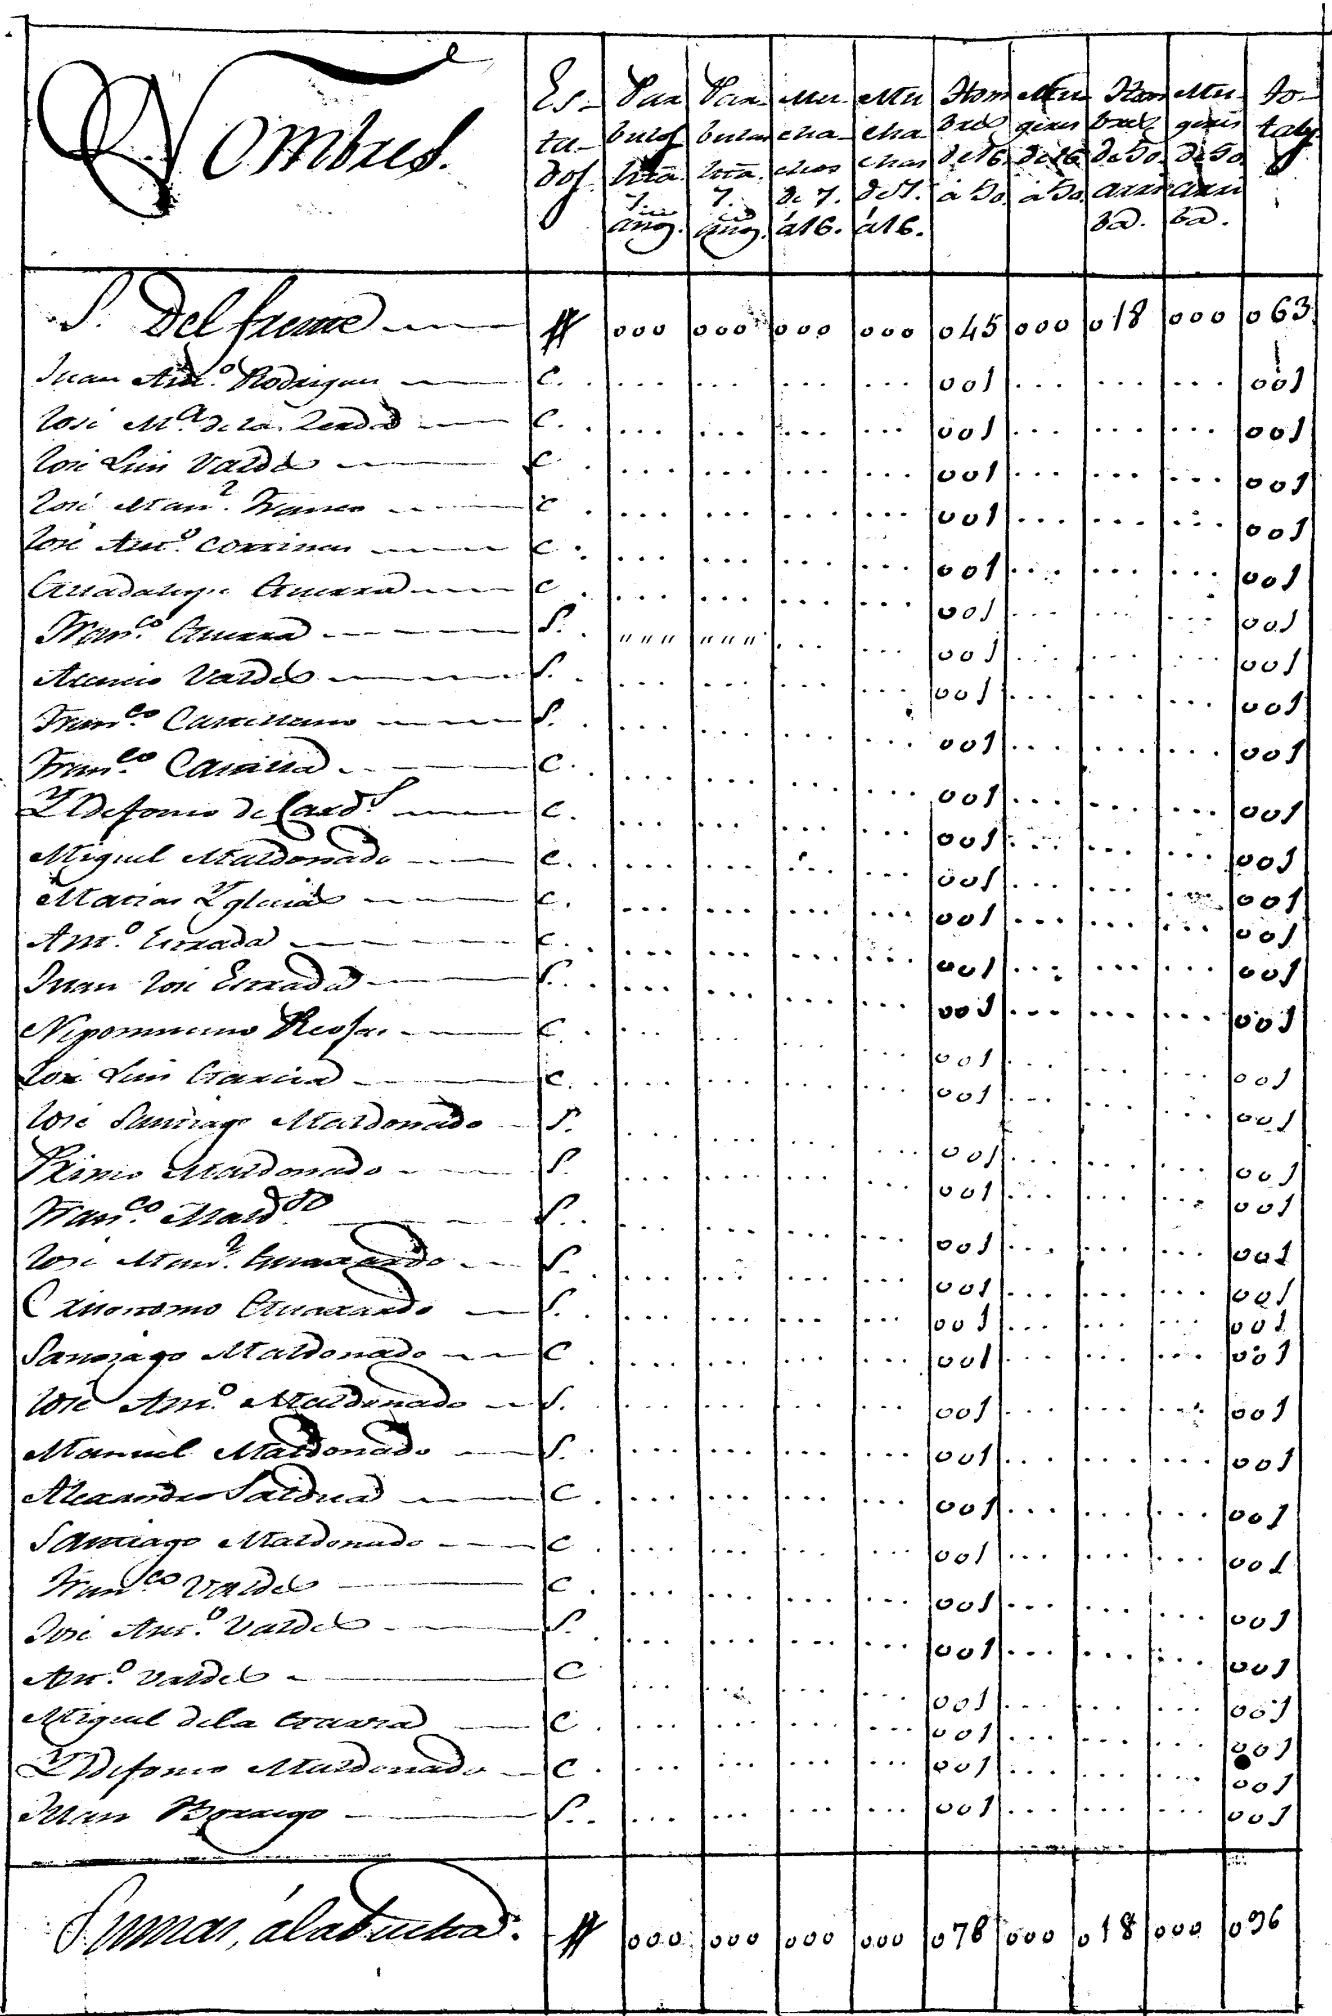 Nombres. Estados Parbulos hta. 7. años. Parbulas hta. 7. años. Muchachos de 7. á 16. Muchachas de 7. á 16. Hombres de 16. a 50. Mugeres de 16. a 50. Hombres de 50. arriba. Mugeres de 50 arriba. Totales
S. Del frente # 000 000 000 000 045 000 018 000 063
Juan Anto. Rodrigues C. ... ... ... ... 001 ... ... ... 001
José Ma. de la Zerda C. ... ... ... ... 001 ... ... ... 001
José Luis Valdes C ... ... ... ... 001 ... ... ... 001
José Manl. Franco C ... ... ... ... 001 ... ... ... 001
José Anto. Cortinas C. ... ... ... ... 001 ... ... ... 001
Guadalupe Guerra C ... ... ... ... 001 ... ... ... 001
Franco. Guerra S. " " " " " " ... ... 001 ... ... ... 001
Acencio Valdes S. ... ... ... ... 001 ... ... ... 001
Franco. Castellano S. ... ... ... ... 001 ... ... ... 001
Franco. C. ... ... ... ... 001 ... ... ... 001
Yldefonso de C. ... ... ... ... 001 ... ... ... 001
Miguel Maldonado C. ... ... ... ... 001 ... ... ... 001
Matias Yglecias C. ... ... ... ... 001 ... ... ... 001
Anto. Estrada C. ... ... ... ... 001 ... ... ... 001
Juan José Estrada S. ... ... ... ... 001 ... ... ... 001
Nepomuceno C. ... ... ... ... 001 ... ... ... 001
José Luis Garcia C. ... ... ... ... 001 ... ... ... 001
José Santiago Maldonado S. ... ... ... ... 001 ... ... ... 001
Primo Maldonado S. ... ... ... ... 001 ... ... ... 001
Franco. Malddo. S. ... ... ... ... 001 ... ... ... 001
José Manl. Guaxardo S. ... ... ... ... 001 ... ... ... 001
Crisostomo Guaxardo S. ... ... ... ... 001 ... ... ... 001
Santiago Maldonado C. ... ... ... ... 001 ... ... ... 001
José Anto. Maldonado S. ... ... ... ... 001 ... ... ... 001
Manuel Maldonado S. ... ... ... ... 001 ... ... ... 001
Alexandro Saldua C. ... ... ... ... 001 ... ... ... 001
Santiago Maldonado C. ... ... ... ... 001 ... ... ... 001
Franco Valdes C. ... ... ... ... 001 ... ... ... 001
José Anto. Valdes S. ... ... ... ... 001 ... ... ... 001
Anto. Valdes C ... ... ... ... 001 ... ... ... 001
Miguel de la Garza C. ... ... ... ... 001 ... ... ... 001
Yldefonso Maldonado C. ... ... ... ... 001 ... ... ... 001
Juan Borrego S. ... ... ... ... 001 ... ... ... 001
Sumas, á la buelta. # 000 000 000 000 078 000 018 000 096